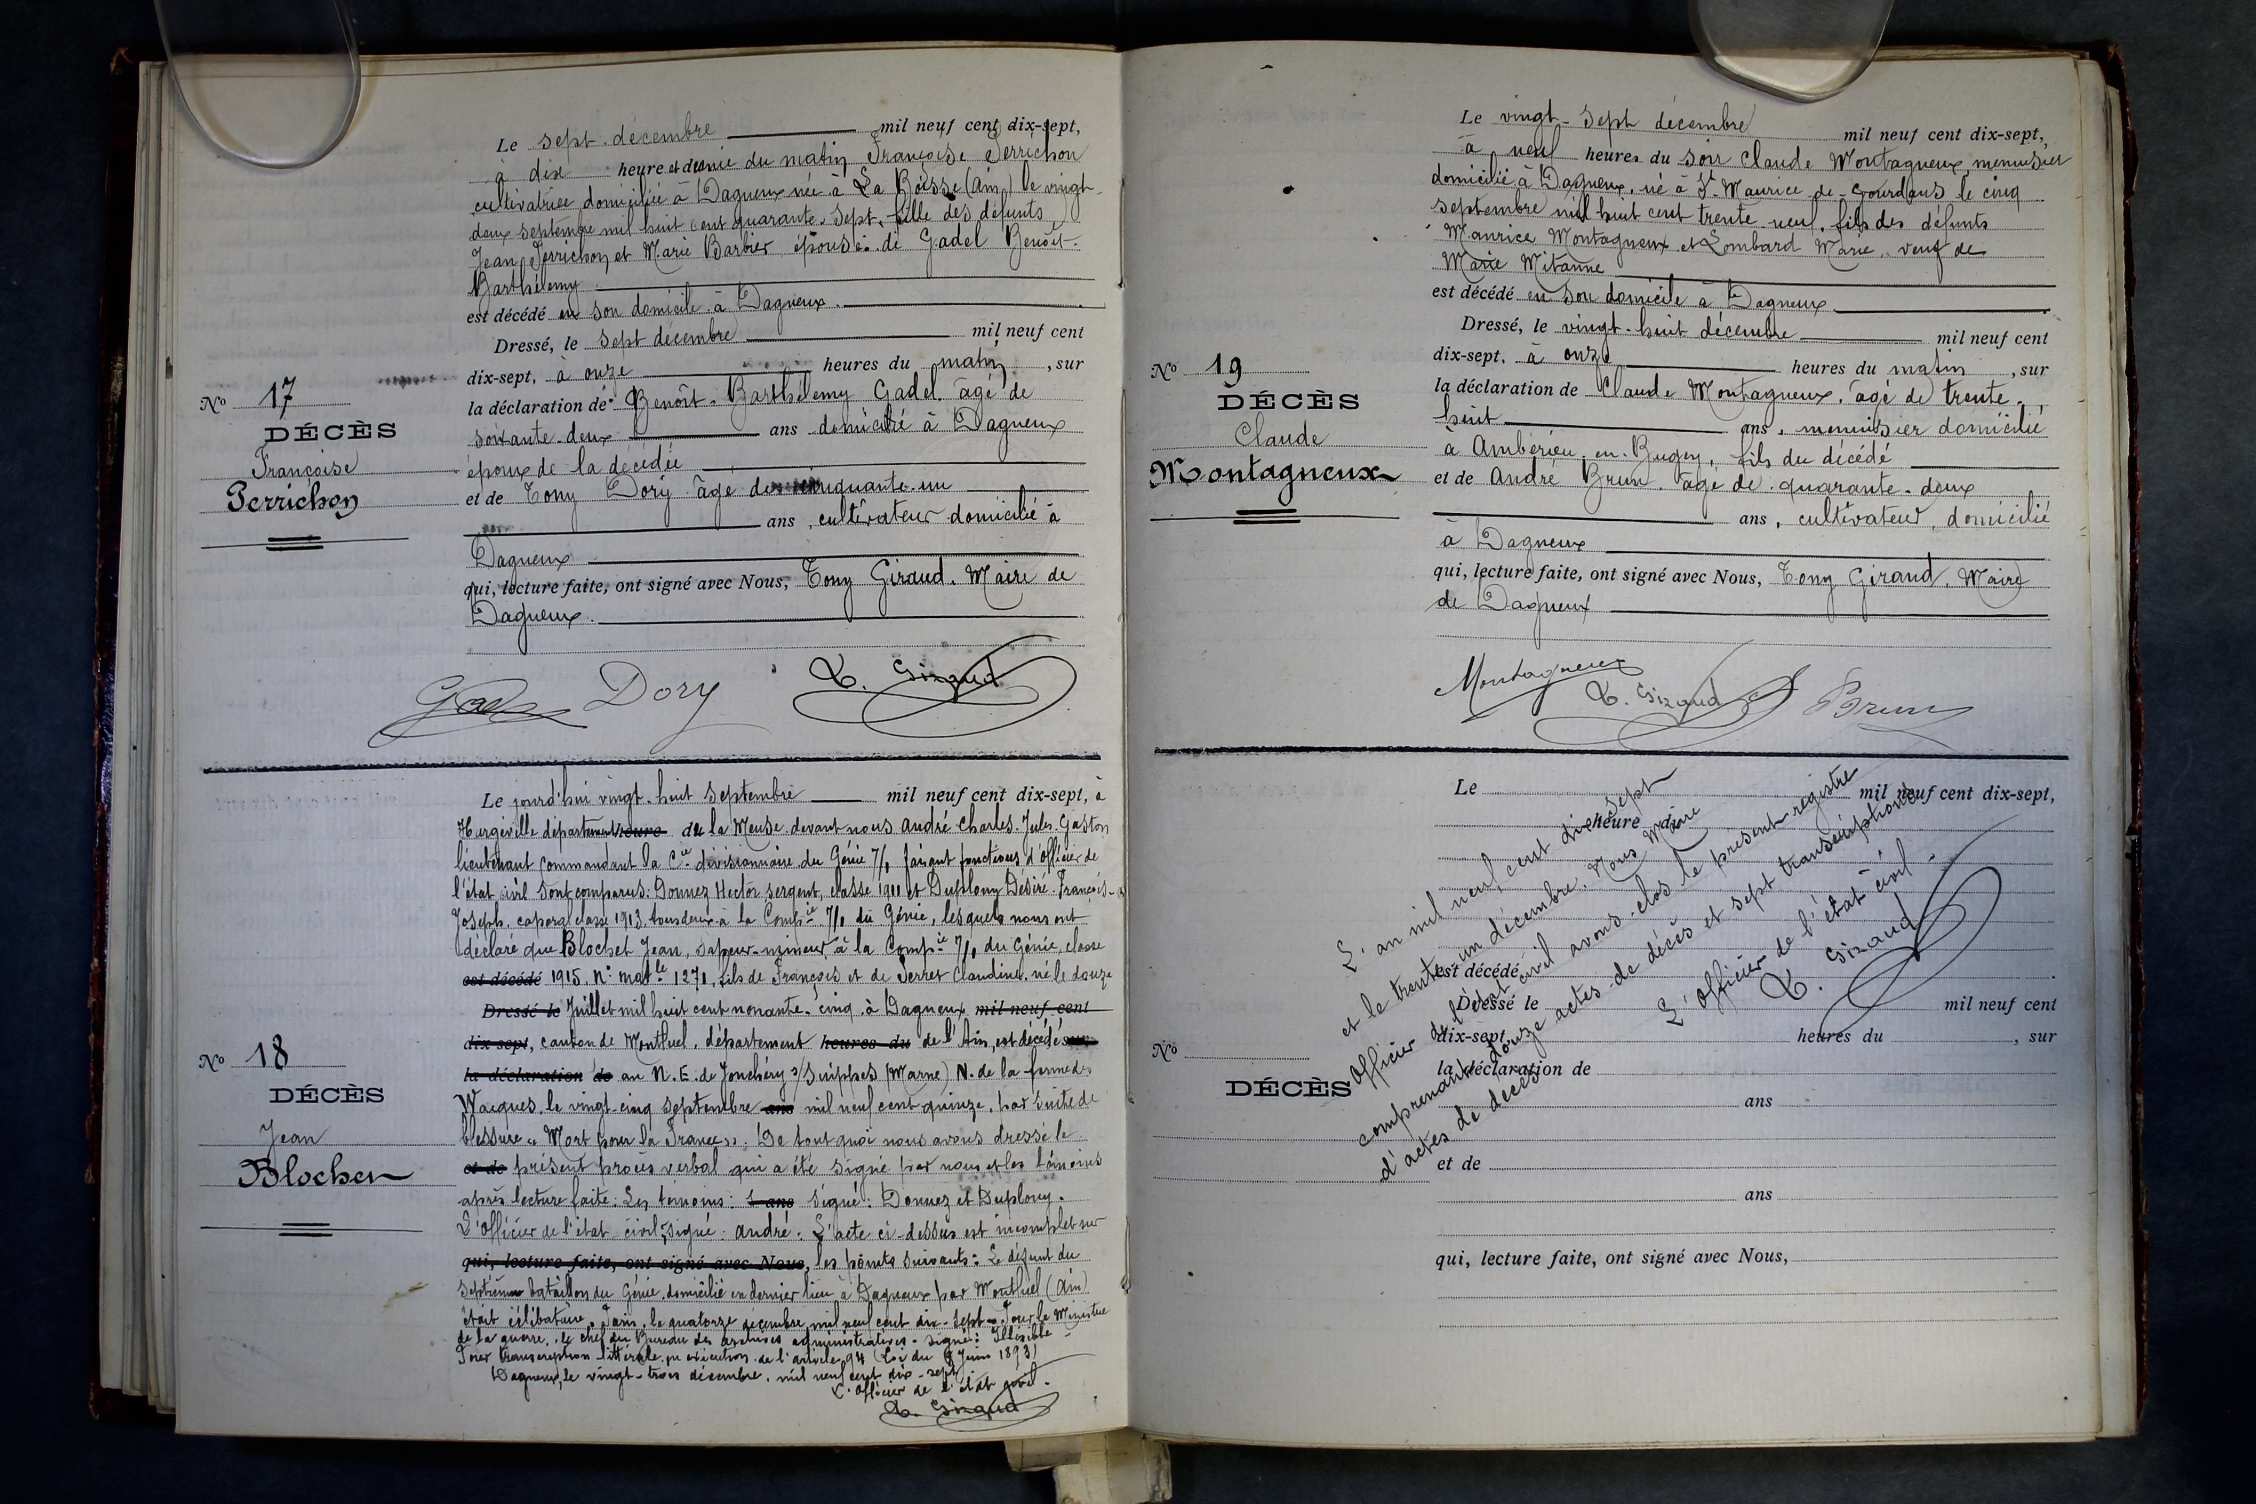 Le sept décembre mil neuf cent dix-sept,
à dix heure et demie du matin Françoise Perrichon
cultivatrice domiciliée à Dagneux née à La Boisse (Ain) le vingt-
deux septembre mil huit cent quarante-sept, fille des défunts
Jean Perrichon et Marie Barbier épouse de Gadel Benoît-
Barthélemy
est décédé en son domicile à Dagneux.
Dressé, le sept décembre mil neuf cent
dix-sept, à onze heures du matin, sur
la déclaration de Benoît-Barthélemy Gadel âgé de
soixante-deux ans domicilié à Dagneux
époux de la décédée
et de Tony Dory âgé de cinquante-un
ans, cultivateur domicilié à
Dagneux
qui, lecture faite, ont signé avec Nous, Tony Giraud. Maire de
Dagneux.
Dory T. Giraud
No 17
DÉCÈS
Françoise
Perrichon
Le jourd'hui vingt-huit septembre mil neuf cent dix-sept, à
Hargeville département heure du la Meuse devant nous André Charles-Jules-Gaston
lieutenant commandant la Cie divisionnaire du Génie 7/1 faisant fonctions d'officier de
l'état civil sont comparus: Donnez Hector sergent, classe 1911 et Duplouy Désiré-François-
Joseph, caporal classe 1913 tous deux à la Compie 7/1 du Génie, lesquels nous ont
déclaré que Blochet Jean, sapeur-mineur à la Compie 7/1 du Génie, classe
est décédé 1915 No matle 1271, fils de François et de Perret Claudine, né le douze
Dressé le Juillet mil huit cent nonante-cinq à Dagneux mil neuf cent
dix-sept, canton de Montluel, département heures du de l'Ain, est décédé sur
la déclaration de au N.E. de Jonchéry s/ Suippes (Marne) N. de la ferme des
Wacques le vingt-cinq septembre ans mil neuf cent quinze, par suite de
blessure "Mort pour la France". De tout quoi nous avons dressé le
et de présent procès verbal qui a été signé par nous et les témoins
après lecture faite: Les témoins: ans signé: Donnez et Duplouy.
L'officier de l'état-civil, signé: André. L'acte ci-dessus est incomplet sur
qui, lecture faite, ont signé avec Nous, les points suivants: Le défunt du
septième bataillon du Génie, domicilié en dernier lieu à Dagneux par Montluel (Ain)
était célibataire. Paris, le quatorze décembre mil neuf cent dix-sept. Pour le Ministre
de la guerre, le chef du Bureau des archives administratives. signé: Illisible
Pour transcription littérale en exécution de l'article 94 (Loi du 8 Juin 1893)
Dagneux, le vingt-trois décembre, mil neuf cent dix-sept
L'officier de l'état civil.
T. Giraud
No 18
DÉCÈS
Jean
Blochet
Le vingt-sept décembre mil neuf cent dix-sept,
à neuf heures du soir Claude Montagneux, menuisier
domicilié à Dagneux, né à St Maurice-de-Gourdans le cinq
septembre mil huit cent trente-neuf, fils des défunts
Maurice Montagneux et Lombard Marie, veuf de
Marie Mitanne
est décédé en son domicile à Dagneux
Dressé, le vingt-huit décembre mil neuf cent
dix-sept, à onze heures du matin, sur
la déclaration de Claude Montagneux, âgé de trente-
huit ans, menuisier domicilié
à Ambérieu-en-Bugey, fils du décédé
et de André Brun âgé de quarante-deux
ans, cultivateur, domicilié
à Dagneux
qui, lecture faite, ont signé avec Nous, Tony Giraud, Maire
de Dagneux
Montagneux T. Giraud Brun
No 19
DÉCÈS
Claude
Montagneux
Le mil neuf cent dix-sept,
heure
est décédé
Dressé le mil neuf cent
dix-sept, heures du , sur
la déclaration de
ans
et de
ans
qui, lecture faite, ont signé avec Nous,
No
DÉCÈS
L'an mil neuf cent dix sept
et le trente-un décembre. Nous Maire
officier de l'état civil avons clos le présent registre
comprenant douze actes de décès et sept transcriptions
d'actes de décès
L'officier de l'état civil.
T. Giraud